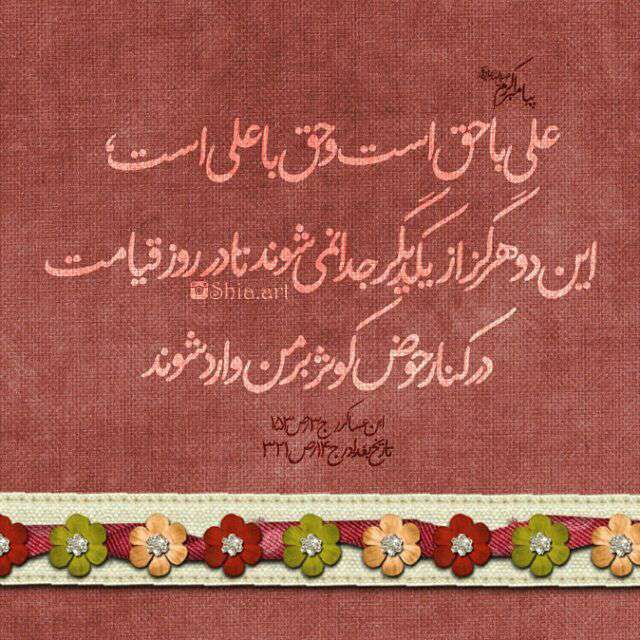 پیامبر اکرم
علی با حق است و حق با علی است؛
این دو هرگز از یکدیگر جدا نمی‌شوند تا در روز قیامت
Shia.art
در کنار حوض کوثر بر من وارد شوند
ابن عساکر، ج۳، ص۱۵۳
تاریخ بغداد، ج۱۴، ص۳۲۱